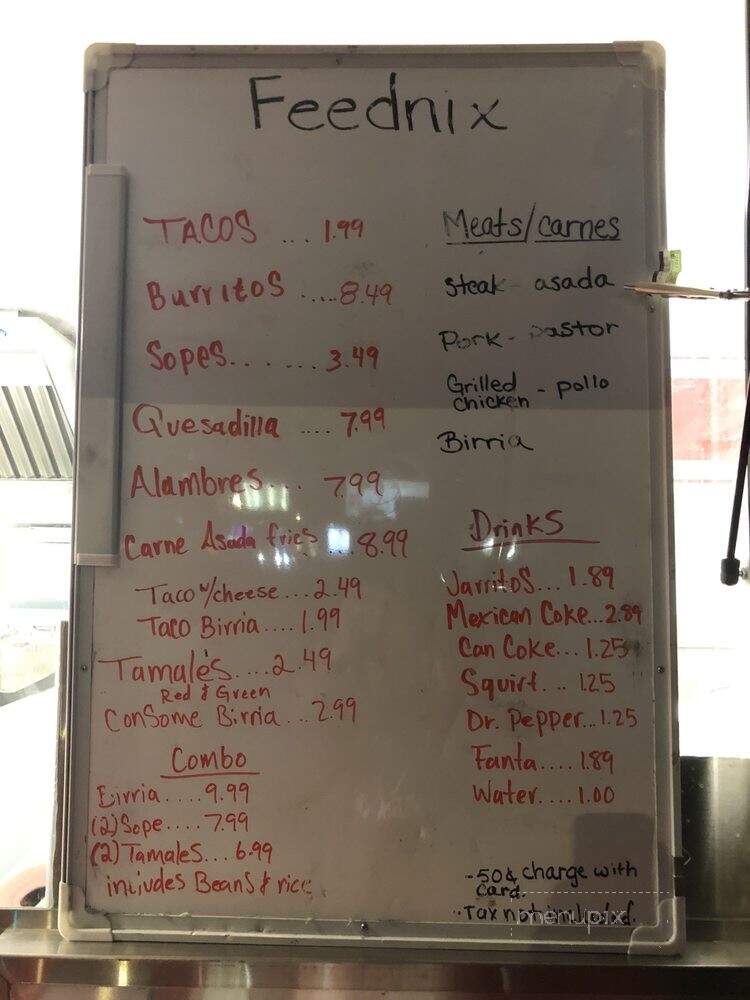 Feednix
TACOS ... 1.99
Burritos ..... 8.49
Sopes. . . .... 3.49
Quesadilla .... 7.99
Alambres.... 7.99
Carne Asada fries ... 8.99
Taco w/cheese... 2.49
Taco Birria.... 1.99
Tamales....2.49
Red & Green
Consome Birria ...2.99
Combo
Birria ....9.99
(2) Sope.... 7.99
(2) Tamales... 6.99
includes Beans & rice
Meats/carnes
Steak - asada
Pork - pastor
Grilled chicken - pollo
Birria
Drinks
Jarritos... 1.89
Mexican Coke...2.89
Can Coke... 1.25
Squirt. .. 1.25
Dr. Pepper...1.25
Fanta.... 1.89
Water.... 1.00
-50¢ charge with
card.
·Tax not included.
menupix